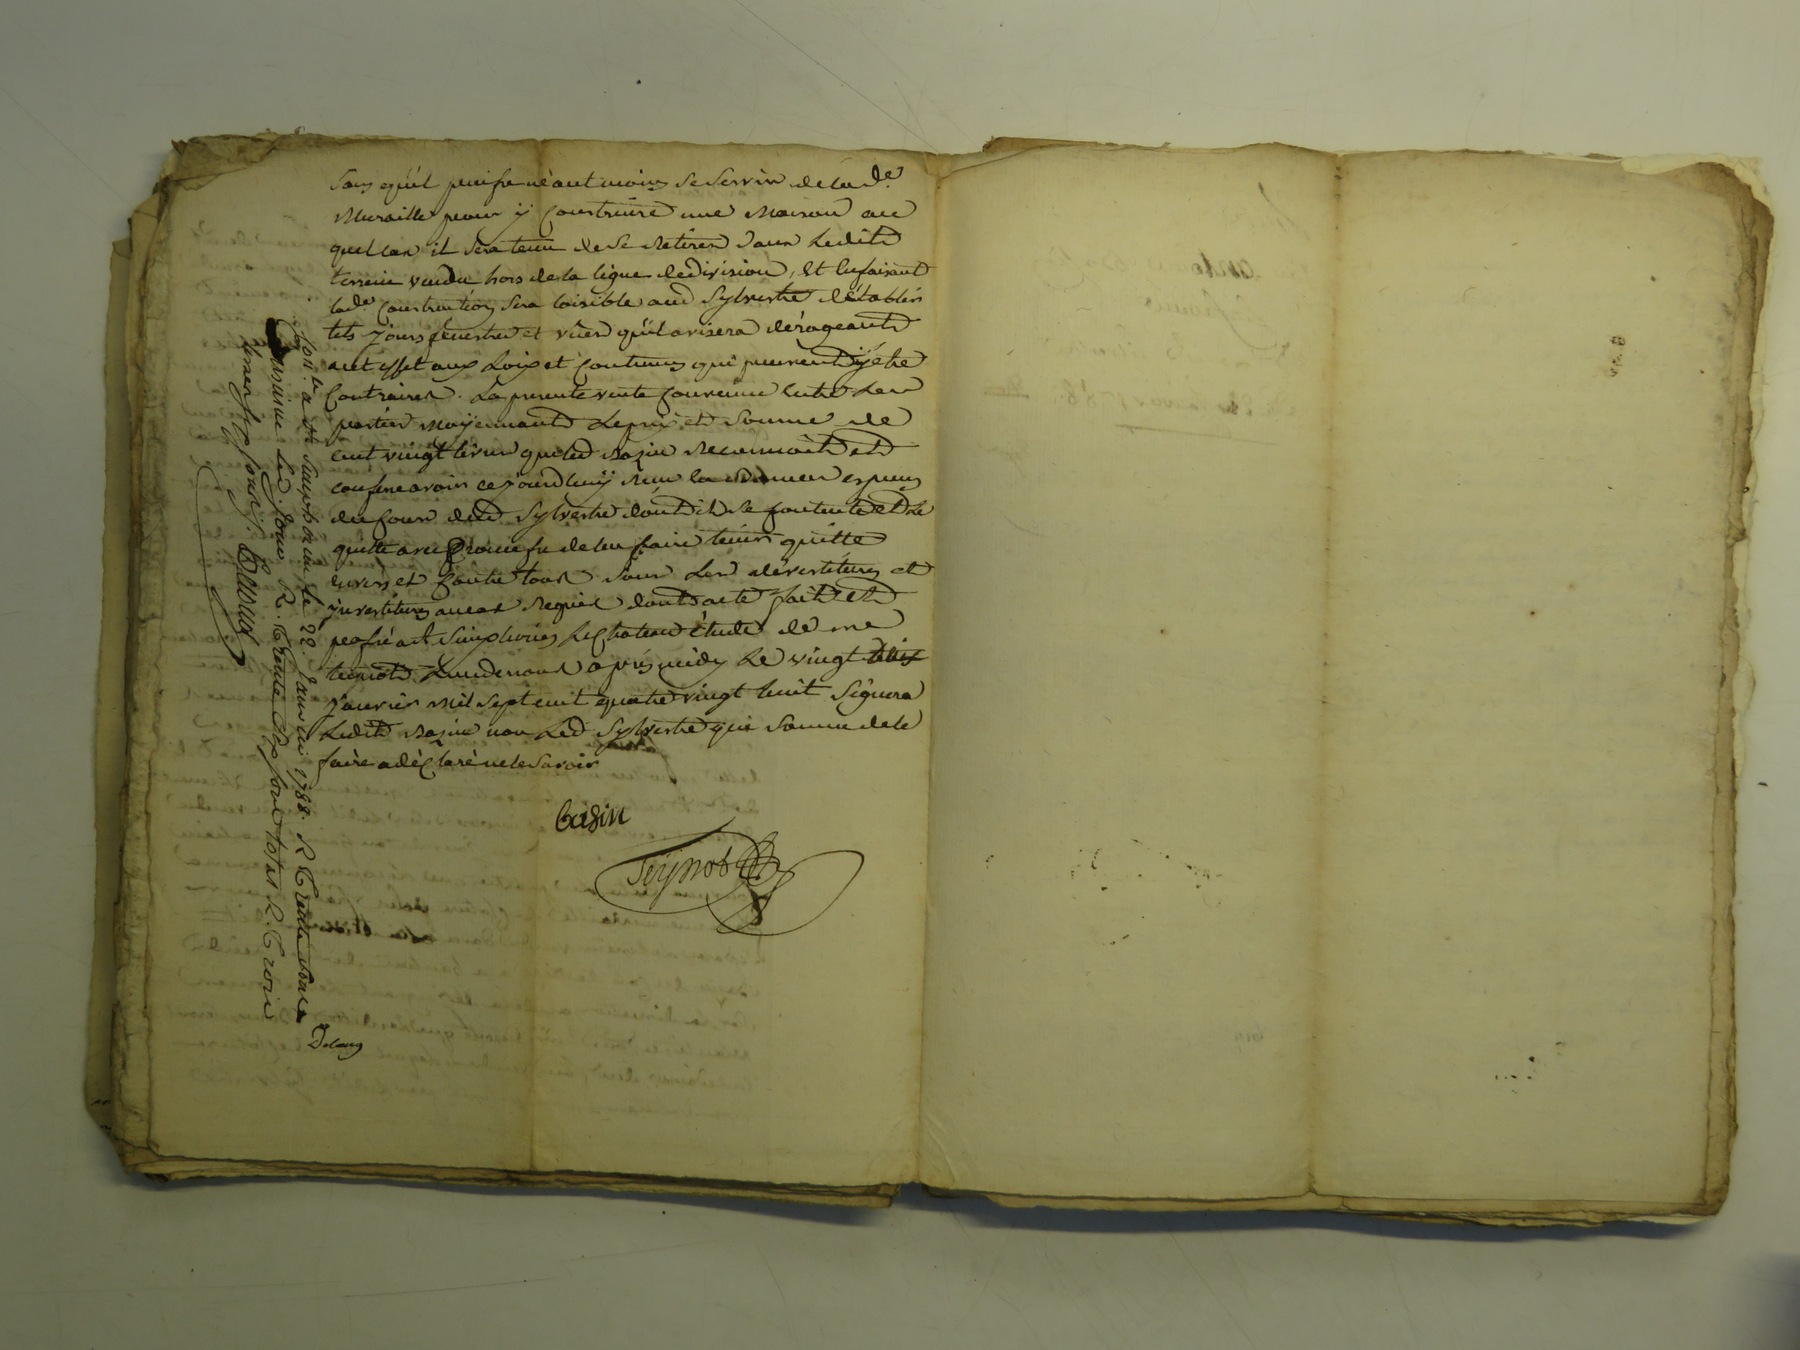 sans qu'il puisse néantmoins se servir de lad.e
muraille pour y construire une maison au
quel cas il sera tenu de se retirer dans ledit
terrein vendu hors de la ligne de division, et en faisant
lad.e construction sera loisible aud Sylvestre d'établir
tels jours fenestres et vües qu'il avisera dérogeants
a cet effet aux Loix et Coutumes qui peuvent y être
Contraires. La presente vente convenue entre les
parties moÿennant le prix et somme de
cent vingt livres que led Bazin reconnoit et
confesse avoir ce jourd'huÿ reçu en especes
du cours dud Sylvestre dont il se contente et le
quitte avec promesse de l'en faire tenir quitte
envers et contre tous sous les dévestitures et
investitures au cas requises dont acte fait et
passé a St Simphorien le chateau étude de me
teynot l'un de nous après midy le vingt
janvier mil sept cent quatre vingt huit signera
ledit Bazin non led Sylvestre qui sommé de le
faire a déclaré ne le savoir
Bazin
Teynot
Con.lé a St Simphorien le 22 Janvier 1788. R. trente sous
Delang
insinué led. jour R. trente